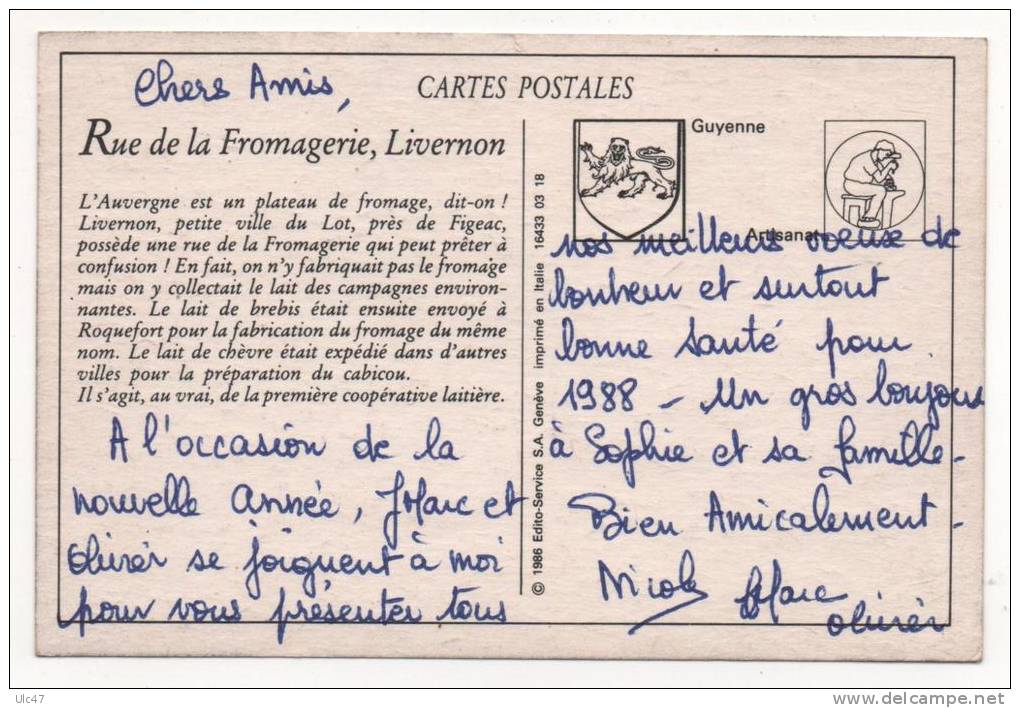 Chers Amis,
CARTES POSTALES
Rue de la Fromagerie, Livernon
L'Auvergne est un plateau de fromage, dit-on !
Livernon, petite ville du Lot, près de Figeac,
possède une rue de la Fromagerie qui peut prêter à
confusion ! En fait, on n'y fabriquait pas le fromage
mais on y collectait le lait des campagnes environ-
nantes. Le lait de brebis était ensuite envoyé à
Roquefort pour la fabrication du fromage du même
nom. Le lait de chèvre était expédié dans d'autres
villes pour la préparation du cabicou.
Il s'agit, au vrai, de la première coopérative laitière.
A l'occasion de la
nouvelle année, JMarc et
Olivier se joignent à moi
pour vous présenter tous
© 1986 Edito-Service S.A. Genève imprimé en Italie 16433 03 18
Guyenne
Artisanat
nos meilleurs voeux de
bonheur et surtout
bonne santé pour
1988 - Un gros bonjour
à Sophie et sa famille -
Bien Amicalement -
Nicole JMarc
Olivier
Ulc47
http://www.delcampe.net